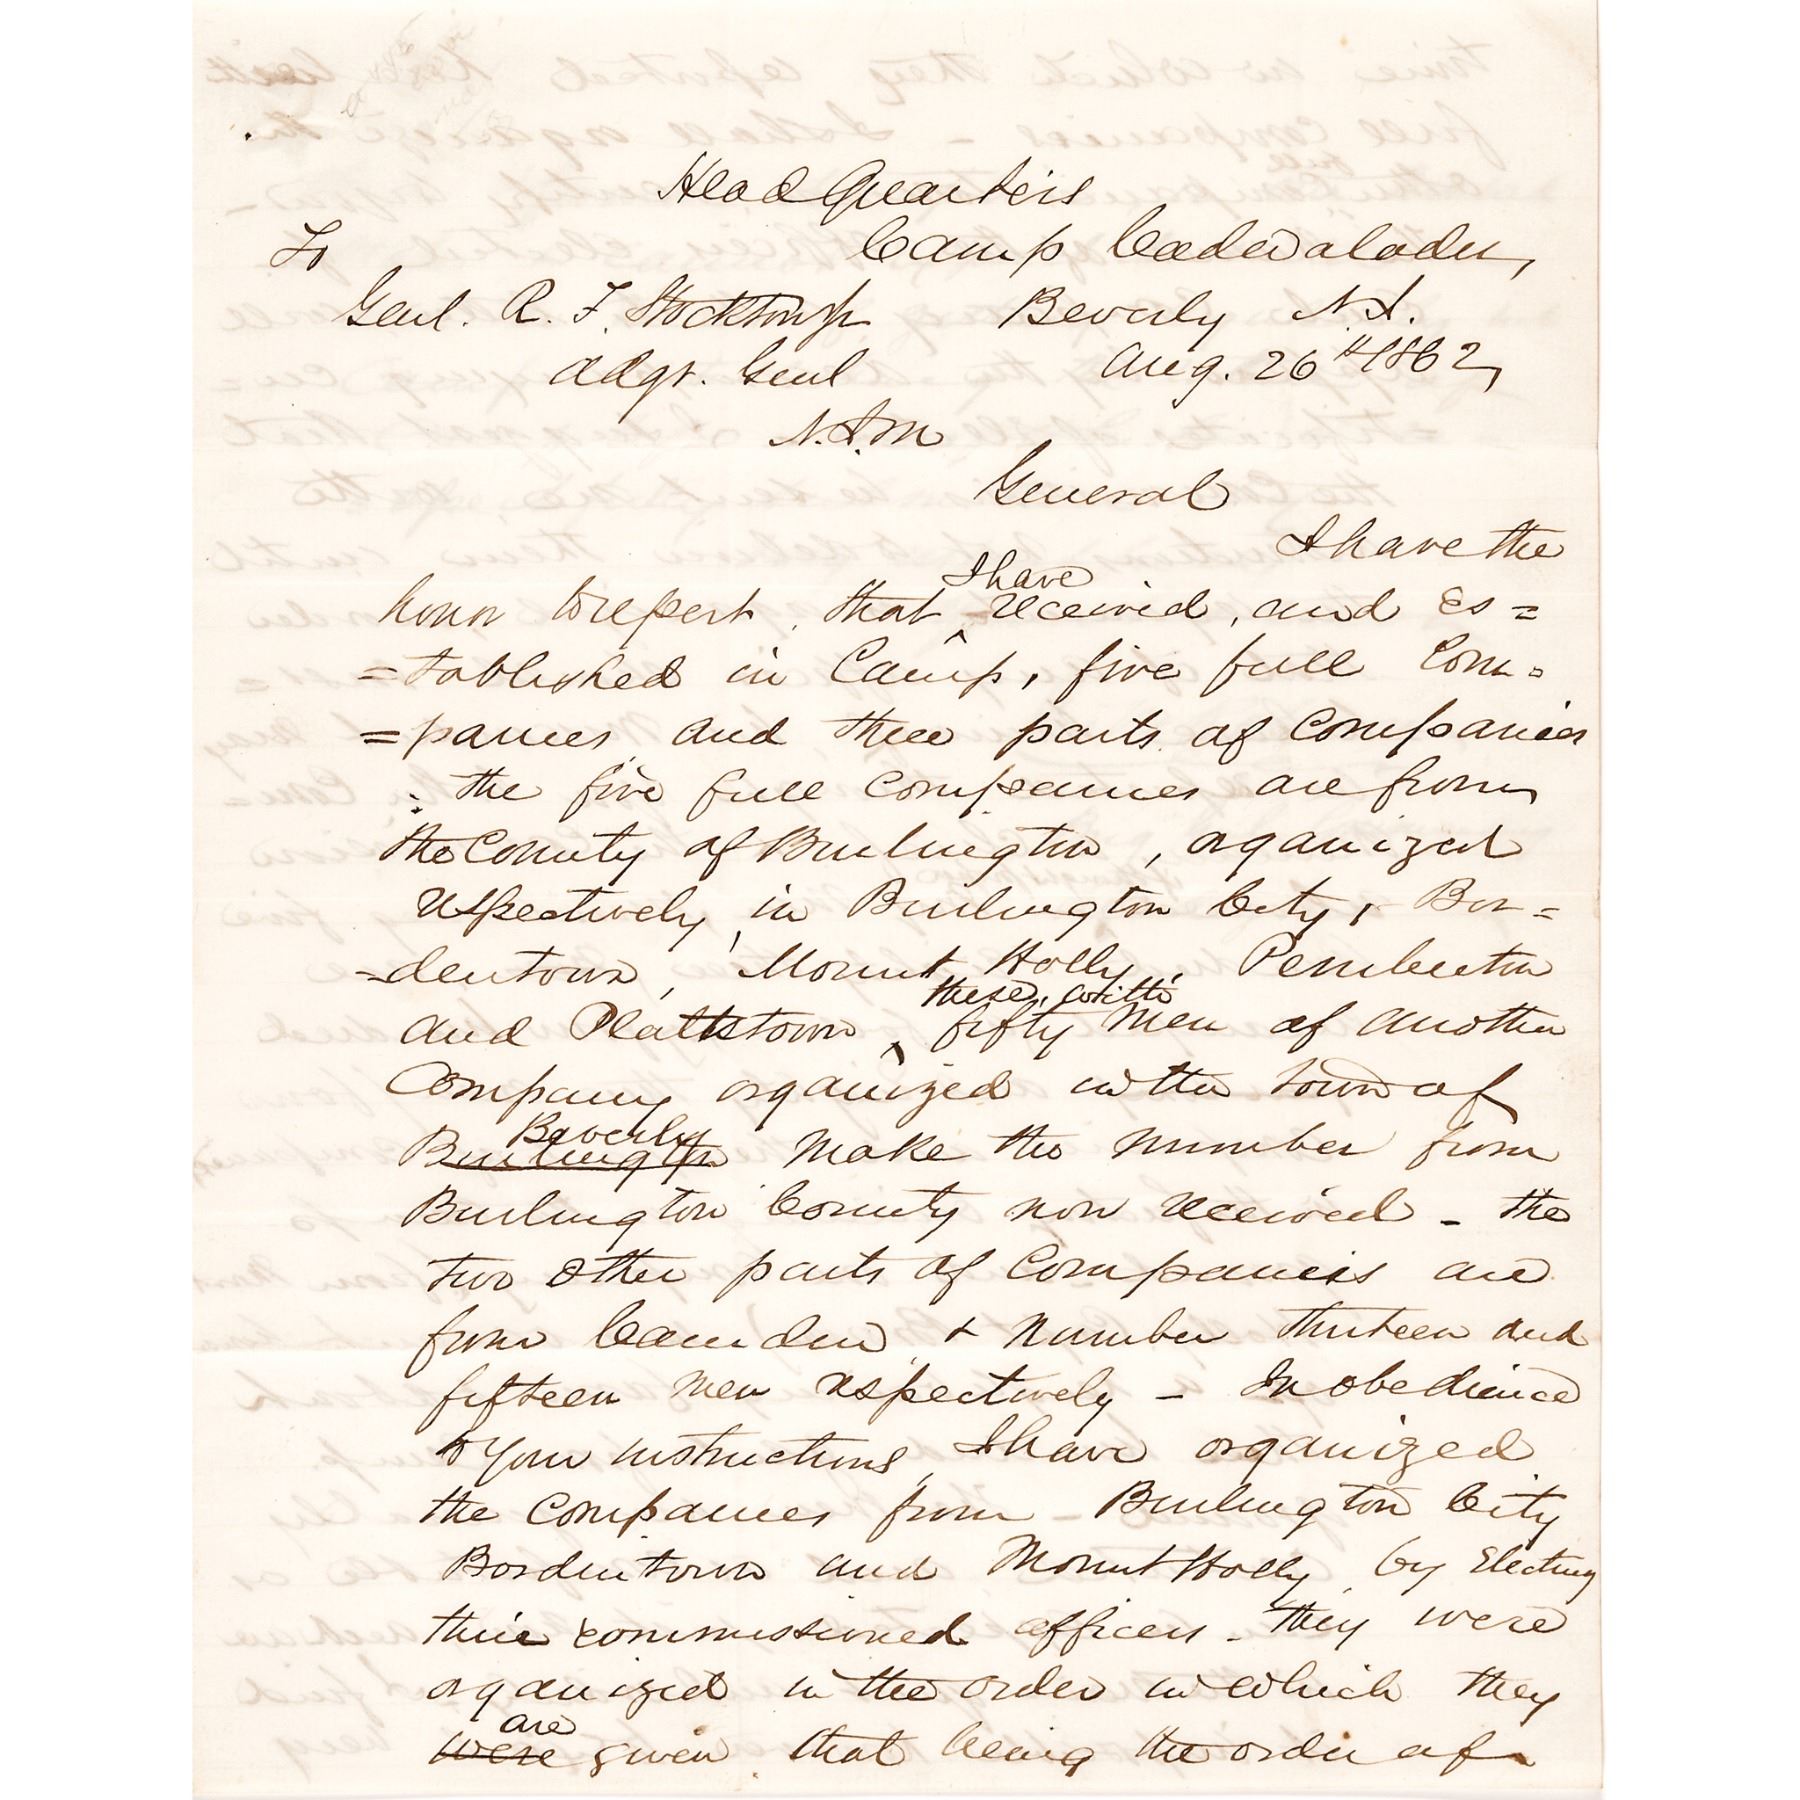 Head Quarters
To Camp Cadwalader,
Genl. R. F. Stockton Jr Beverly N.J.
Adgt. Genl Aug. 26th 1862,
N.J.M
General
I have the
honor to report, that I have received, and es=
=tablished in Camp, five full Com=
=panies, and three parts of Companies
: the five full companies are from
the County of Burlington, organized
respectively, in Burlington City, Bor=
=dentown, Mount Holly, Pemberton
and Plattstown, these, with fifty men of another
Company organized in the town of
Burlington Beverly make the number from
Burlington County now received - the
two other parts of Companies are
from Camden, & number thirteen and
fifteen men respectively - In obedience
to your instructions, I have organized
the Companies from Burlington City
Bordentown and Mount Holly, by electing
their commissioned officers - they were
organized in the order in which they
were are given, that being the order of